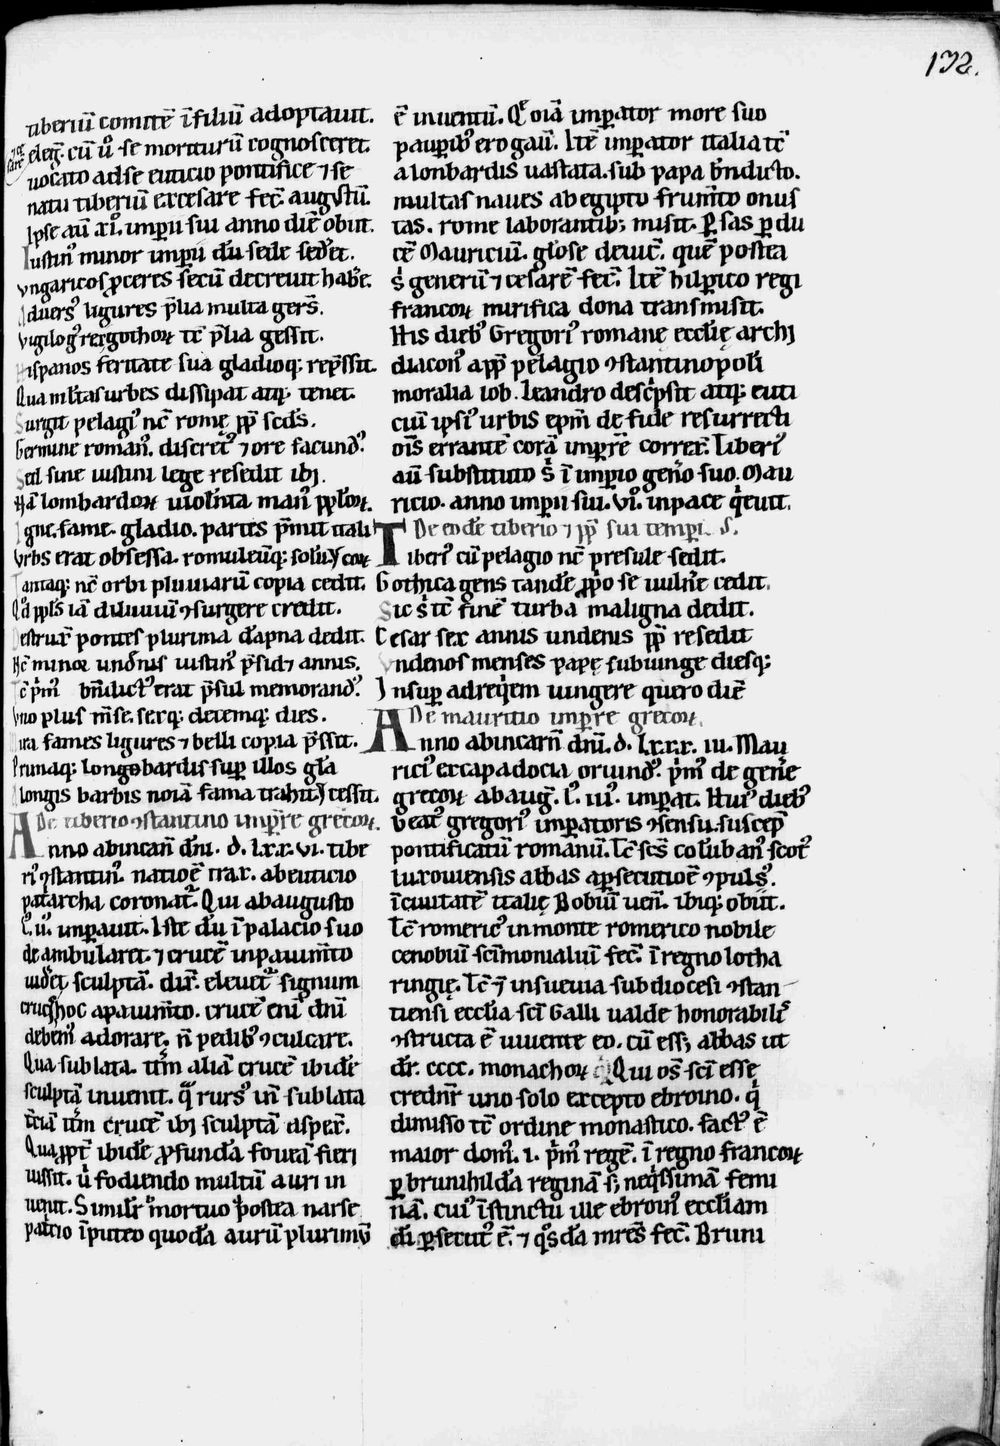 132.
tiberiū comitē ī filiū adoptauit.
eleḡ. cū ů se moriturū cognosceret.
uocato ad se euticio pontifice ⁊ se
natu tiberiū ex cesare fec̄. augustū.
Ipse aū xi. imperii sui anno diē obiit.
Iustinꝰ minor imperii dū sede sederet.
vngaricos ꝓceres secū decreuit habēe.
Aduersꝰ ligures p̄lia multa gerēs.
tc̄ p̄lia gessit.
Hispanos feritate sua gladioq; rep̄ssit.
Qua mltas urbes dissipat atq; tenet.
Surgit pelagiꝰ nc̄ romę pp̄ scd̄s.
Germine romanꝰ. discretꝰ ⁊ ore facundꝰ.
Sed sine iustini lege resedit ibi.
Nā lombardoꝝ uiolenta manꝰ pplōꝝ.
Igne. fame. gladio. partes p̄mit itali
Vrbs erat obsessa. romuleūq;
Tantaq; nc̄ orbi pluuiarū copia cedit.
Qđ ppls iā diluuiū ꝯsurgere credit.
Destruxit pontes plurima dāpna dedit.
Nc̄ minor undenis iustinꝰ p̄sidꝫ annis.
Tc̄ p̄mꝰ bn̄dictꝰ erat p̄sul memorandꝰ.
Vno plus mēse. sexq; decemq; dies.
Mira fames ligures ⁊ belli copia p̄ssit.
Prunaq; longobardis sup illos gl̄a
A longis barbis noīa fama trahit cessit.
De tiberio ꝯstantino imp̄re grecoꝝ.
Anno ab incarn̄ dn̄i. d. lxx.vi. tibe
riꝰ ꝯstantinꝰ. natioē trax. ab euticio
pat̄archa coronatꝰ. Qui ab augusto
l. ů. impauit. Iste dū ī palacio suo
deambularet. ⁊ crucē in pauim̄to
uidet sculptā. dix̄. eleuetꝰ signum
crucis hoc a pauim̄to. crucē enī dn̄i
debemꝰ adorare. n̄ pedibꝰ ꝯculcare.
Qua sublata. itm̄ aliā crucē ibidē
sculptā inuenit. q̄ rursꝰ inī sublata
t̄ciā itm̄ crucē ibi sculptā aspex̄.
Quappt̄ ibidē ꝓfundā fouēā fieri
iussit. ů fodiendo multū auri in
uenit. Similr̄ mortuo postea narse
patricio ī puteo quodā aurū plurimū
ē inuentū. Qđ oīā imperator more suo
pauꝑibꝰ erogauit. Itē imperator italiā tc̄
a lonbardis uastata. sub papa bn̄dicto.
multas naues ab egipto frum̄to onus
tas. rome laborantibꝫ misit. Persas ꝑ du
cē Mauriciū. glōse deuic̄. quē postea
s̄ generū ⁊ cesarē fec̄. Itē hilprico regi
francoꝝ mirifica dona transmisit.
His diebꝰ Gregoriꝰ romanę ecclie archi
diaconꝰ a pp̄ pelagio ꝯstantinopoli
moralia iob. leandro desc̄psit atq; euti
ciū ipsiꝰ urbis ep̄m de fide resurrecti
oīs errantē corā imp̄re correx̄. Tiberiꝰ
aū substituto s̄ ī imperio gen̄o suo. Mau
ricio. anno imperii sui. vi. in pace q̄euit.
De eodē tiberio ⁊ pp̄ sui tempī. S.
Tiberiꝰ cū pelagio nc̄ presule sedit.
Gothica gens tandē ꝓpo se uulnere cedit.
Sic s̄ tc̄ finē turba maligna dedit.
Cesar sex annis undenis pp̄ resedit
Vndenos menses papę subiunge diesq;
Insuper ad reqiem iungere quero diē
De mauritio imp̄re grecoꝝ.
Anno ab incarn̄ dn̄i. d. lxxx. iii. Mau
riciꝰ ex capadocia oriundꝰ. p̄mꝰ de gen̄e
grecoꝝ ab auḡ. l. iii. imperat. Huiꝰ diebꝰ
beatꝰ gregoriꝰ imperatoris ꝯsensu. suscep̄
pontificatū romanū. Tc̄ scs̄ colūbanꝰ scotꝰ
luxouiensis abbas a persecutiōe ꝯpulsꝰ.
ī ciuitatē italię Bobiū uen̄. ibiq; obiit.
Tc̄ romericꝰ in monte romerico nobile
cenobiū sc̄imonialiū fec̄. ī regno lotha
ringię. Tc̄ ⁊ in sueuia sub diocesi ꝯstan
tiensi eccl̄ia sc̄i Galli ualde honorabilis
ꝯstructa ē uiuente eo. cū essꝫ abbas ut
dr̄. cccc. monachoꝝ Qui oēs sc̄i esse
credn̄t uno solo excepto ebroino. q̄
dimisso tc̄ ordine monastico. factꝰ ē
maior domꝰ. i. p̄mꝰ regē. ī regno francoꝝ
ꝑ brunihildā reginā sꝫ neq̄ssimā femi
nā. cuiꝰ īstinctu ille ebroinꝰ eccl̄iam
dī persecutꝰ ē. ⁊ q̄sdā mr̄es fec̄. Bruni